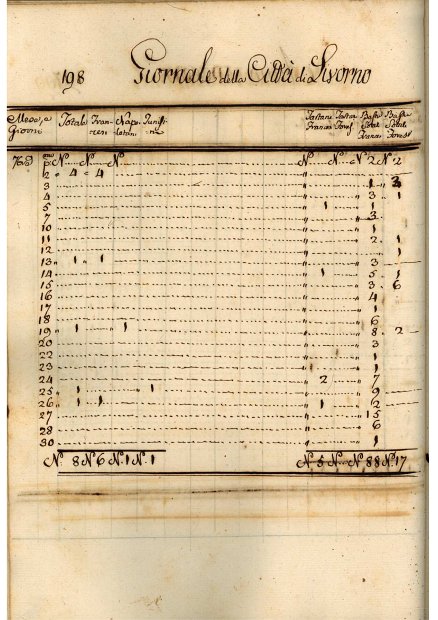 198 Giornale della Città di Livorno
Mese, e Totale Fran- Napo- Tunisi- Tartane Tartan Bast.i Basti
Giorni cesi letani ne Frances Forest
pº N. N. N. N. N. N. 2 N. 2
2 4 4
3 1 3
4 3 1
5 1 1
7 3
10 1
11 2 1
12 1
13 1 1 3
14 1 5 1
15 3 6
16 4
17 1
18 6
19 1 1 8 2
20 3
22 1
23 1
24 2 7
25 1 1 9
26 1 1 1 2
27 15
28 6
30 1
N. 8 N. 6 N. 1 N. 1 N. 5 N. N. 88 N. 17